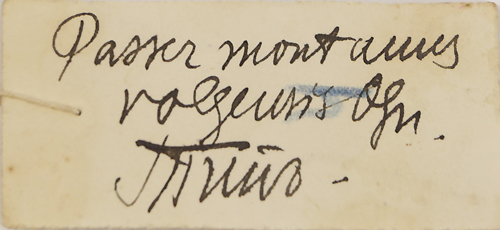 Passer montanus
volgensis Ogn.